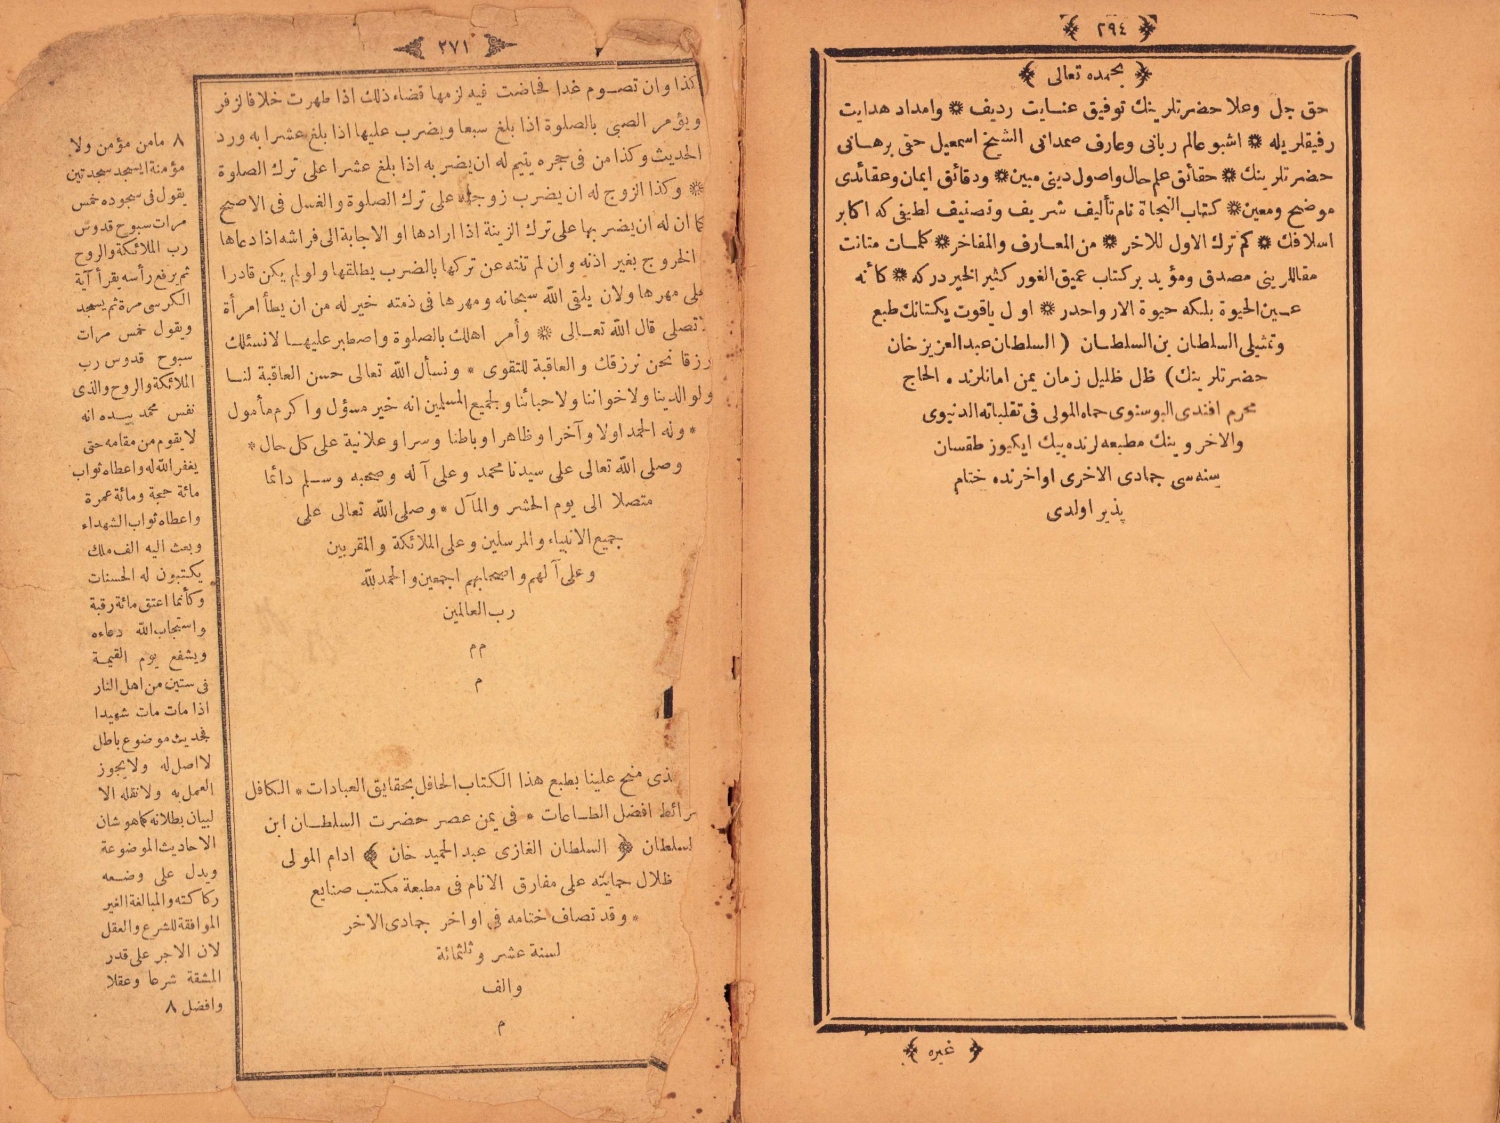 ﴿ ٢٩٤ ﴾
﴿ بحمده تعالى ﴾
حق جل وعلا حضرتلرينك توفيق عنايت رديف ❋ وامداد هدايت
رفيقلريله ❋ اشبو عالم ربانى وعارف صمدانى الشيخ اسمعيل حقى برهانى
حضرتلرينك ❋ حقائق علم حال واصول دينى مبين ❋ ودقائق ايمان وعقائدى
موضح ومعين ❋ كتاب النجاة نام تأليف شريف وتصنيف لطيفى كه اكابر
اسلافك ❋ كم ترك الاول للآخر ❋ من المعارف والمفاخر ❋ كلمات متانت
مقاللرينى مصدق ومؤيد بر كتاب عميق الغور كثير الخيردركه ❋ كأنه
عين الحيوة بلكه حيوة الارواحدر ❋ اول ياقوت يكتانك طبع
وتمثيلى السلطان بن السلطان ( السلطان عبد العزيز خان
حضرتلرينك ) ظل ظليل زمان يمن امانلرنده ٠ الحاج
محرم افندى البوسنوى حماه المولى فى تقلباته الدنيوى
والاخروينك مطبعه لرنده بيك ايكيوز طقسان
سنه سى جمادى الاخرى اواخرنده ختام
پذير اولدى
﴿ غيره ﴾
﴿ ٢٧١ ﴾
كذا وان تصوم غدا فحاضت فيه لزمها قضاء ذلك اذا طهرت خلافا لزفر
ويؤمر الصبى بالصلوة اذا بلغ سبعا ويضرب عليها اذا بلغ عشرا به ورد
الحديث وكذا من فى حجره يتيم له ان يضربه اذا بلغ عشرا على ترك الصلوة
❋ وكذا الزوج له ان يضرب زوجته على ترك الصلوة والغسل فى الاصح
كما ان له ان يضربها على ترك الزينة اذا ارادها او الاجابة الى فراشه اذا دعاها
الخروج بغير اذنه وان لم تنته عن تركها بالضرب يطلقها ولو لم يكن قادرا
على مهرها ولان يلقى الله سبحانه ومهرها فى ذمته خير له من ان يطأ امرأة
لا تصلى قال الله تعالى ❋ وأمر اهلك بالصلوة واصطبر عليها لا نسئلك
رزقا نحن نرزقك والعاقبة للتقوى * ونسأل الله تعالى حسن العاقبة لنا
ولوالدينا ولاخواننا ولاحبائنا ولجميع المسلمين انه خير مسؤل واكرم مأمول
* وله الحمد اولا وآخرا وظاهرا وباطنا وسرا وعلانية على كل حال *
وصلى الله تعالى على سيدنا محمد وعلى آله وصحبه وسلم دائما
متصلا الى يوم الحشر والمآل * وصلى الله تعالى على
جميع الانبياء والمرسلين وعلى الملائكة والمقربين
وعلى آلهم واصحابهم اجمعين والحمد لله
رب العالمين
م م
م
ذى منح علينا بطبع هذا الكتاب الحافل بحقايق العبادات * الكافل
رائط افضل الطاعات * فى يمن عصر حضرت السلطان ابن
لسلطان ﴿ السلطان الغازى عبد الحميد خان ﴾ ادام المولى
ظلال حمايته على مفارق الانام فى مطبعة مكتب صنايع
* وقد تصاف ختامه فى اواخر جمادى الاخر
لسنة عشر وثلثمائة
والف
م
٨ مامن مؤمن ولا
مؤمنة ايسجد سجدتين
يقول فى سجوده خمس
مرات سبوح قدوس
رب الملائكة والروح
ثم يرفع رأسه يقرأ آية
الكرسى مرة ثم يسجد
ويقول خمس مرات
سبوح قدوس رب
الملائكة والروح والذى
نفس محمد بيده انه
لا يقوم من مقامه حتى
يغفر الله له واعطاه ثواب
مائة حجة ومائة عمرة
واعطاه ثواب الشهداء
وبعث اليه الف ملك
يكتبون له الحسنات
وكأنما اعتق مائة رقبة
واستجاب الله دعاءه
ويشفع يوم القيمة
فى ستين من اهل النار
اذا مات مات شهيدا
فحديث موضوع باطل
لا اصل له ولا يجوز
العمل به ولا نقله الا
لبيان بطلانه كما هو شان
الاحاديث الموضوعة
ويدل على وضعه
ركاكته والمبالغة الغير
الموافقة للشرع والعقل
لان الاجر على قدر
المشقة شرعا وعقلا
وافضل ٨